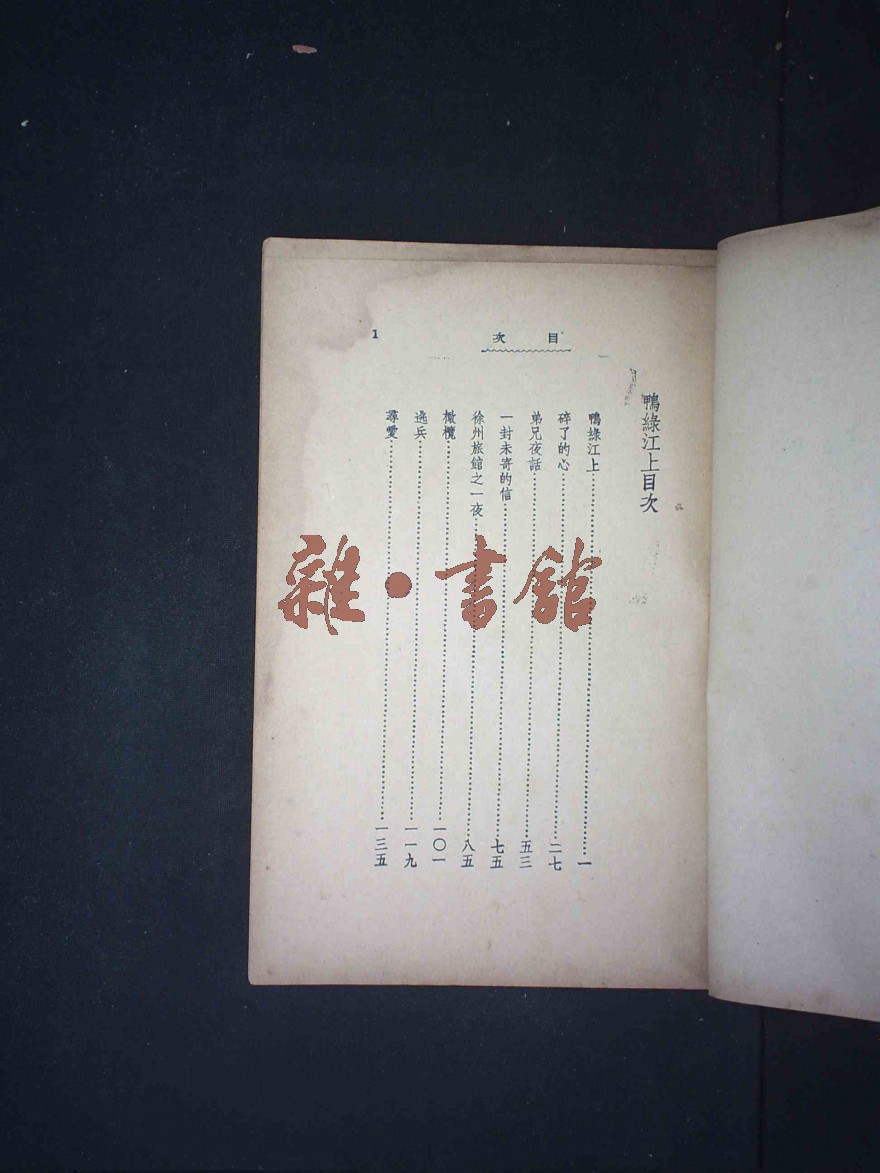 目次
1
鴨綠江上目次
鴨綠江上……一
碎了的心……二七
弟兄夜話……五三
一封未寄的信……七五
徐州旅館之一夜……八五
橄欖……一〇一
逃兵……一一九
尋愛……一三五
雜·書館